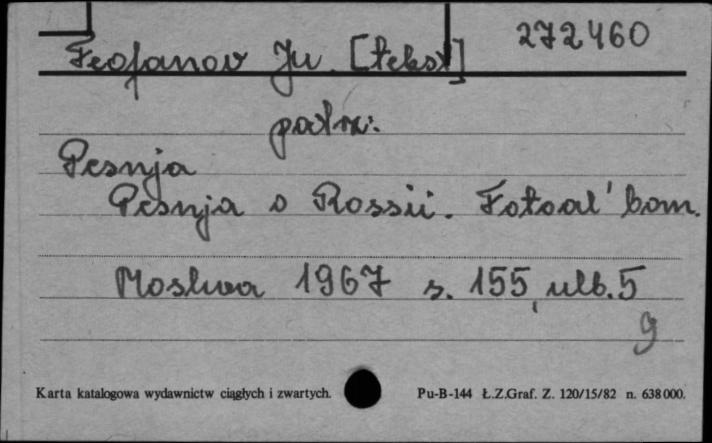 272460
Feofanov Ju. [tekst]
patrz:
Pesnja
Pesnja o Rossii. Fotoal'bom.
Moskva 1967 s. 155, nlb. 5
g
Karta katalogowa wydawnictw ciągłych i zwartych. Pu-B-144 Ł.Z.Graf. Z. 120/15/82 n. 638000.